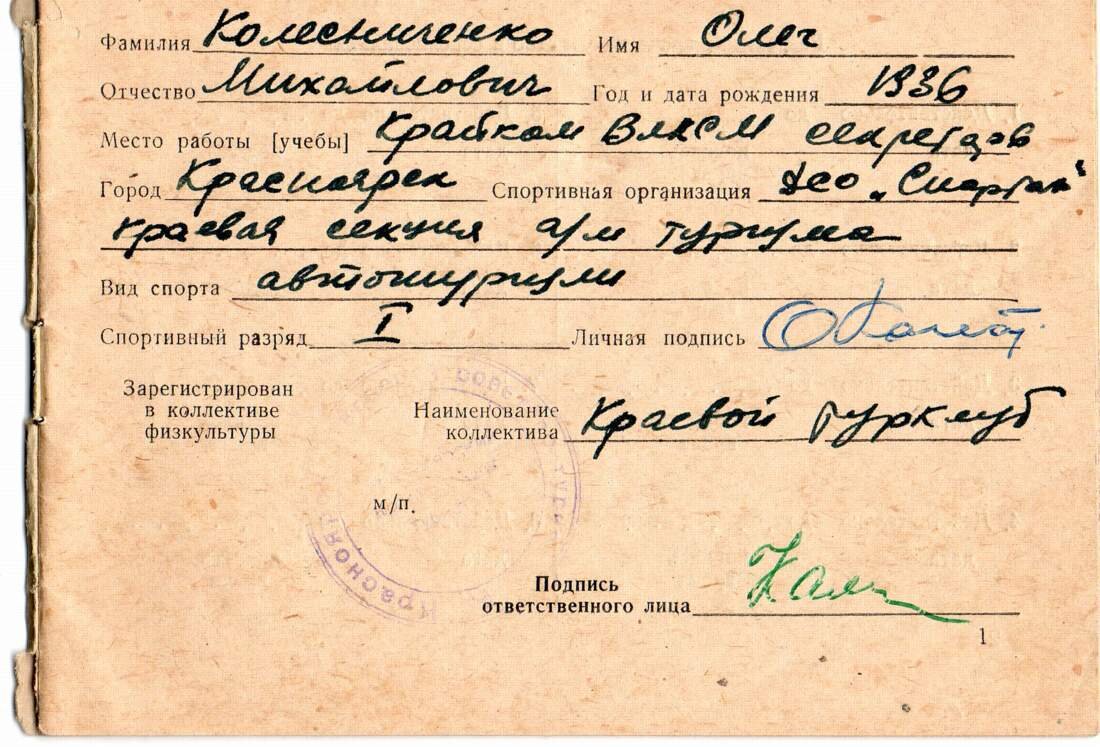 Фамилия Колесниченко Имя Олег
Отчество Михайлович Год и дата рождения 1936
Место работы [учебы] Крайком ВЛКСМ
Город Красноярск Спортивная организация ДСО „Спартак“
краевая секция а/м туризма
Вид спорта автотуризм
Спортивный разряд I Личная подпись
Зарегистрирован
в коллективе
физкультуры
Наименование
коллектива Краевой турклуб
м/п.
Краснояр
Подпись
ответственного лица
1